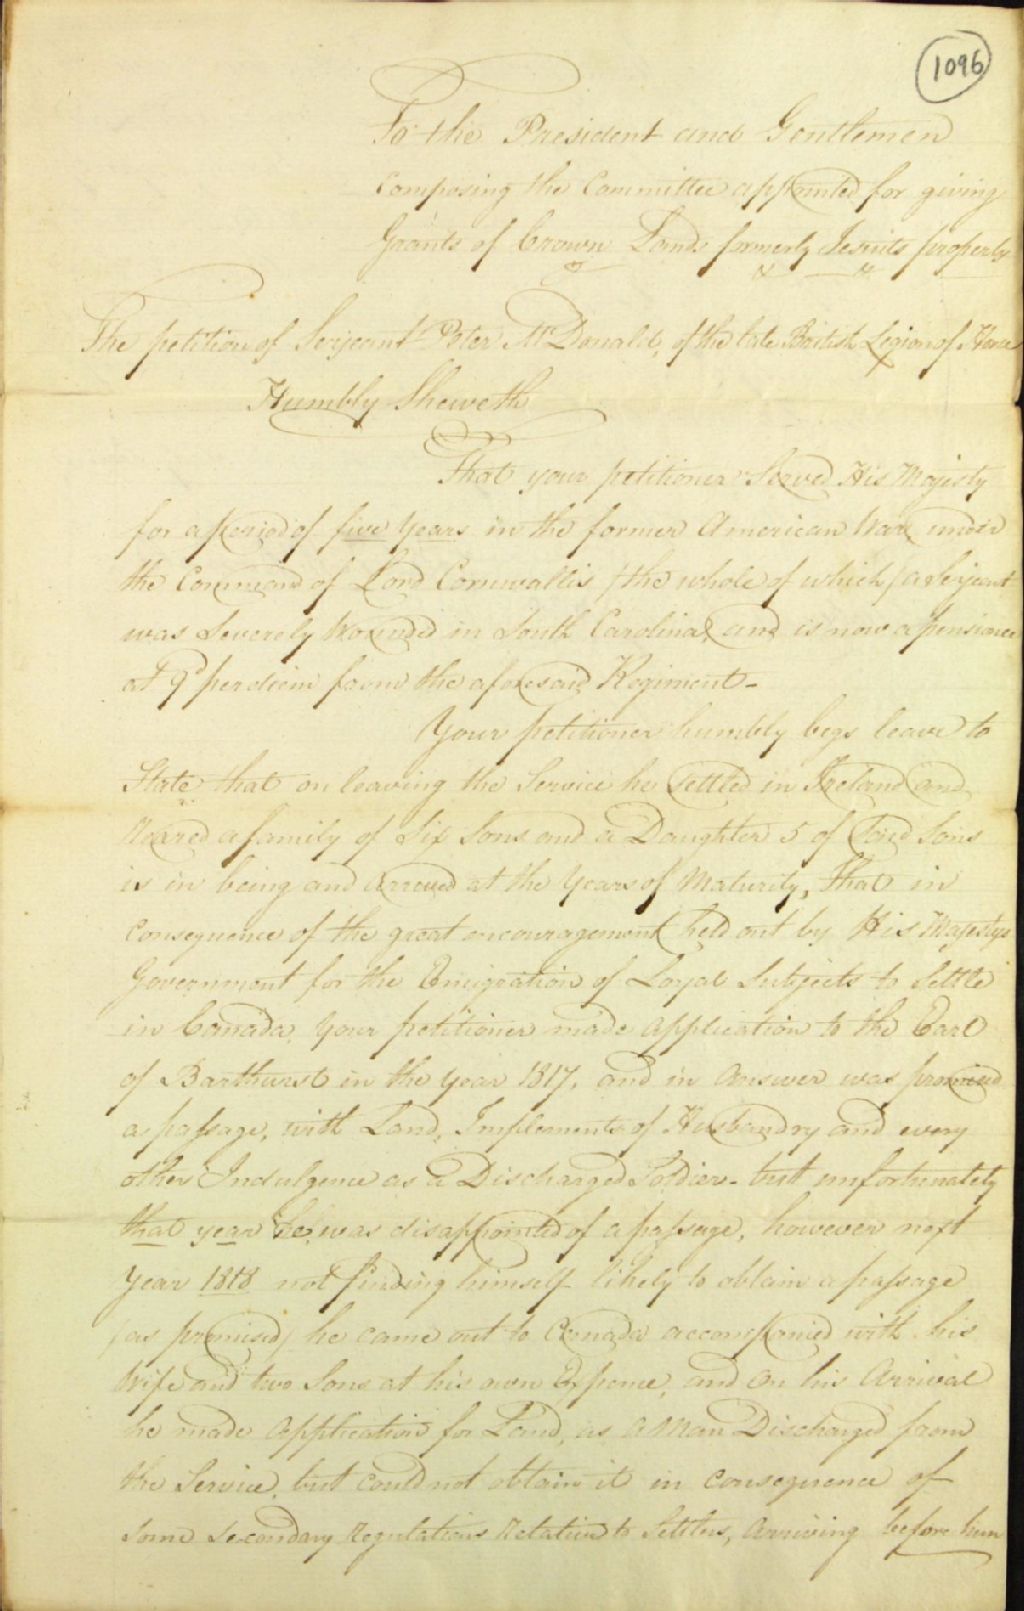 1096
To the President and Gentlemen
Composing the Committee appointed for giving
Grants of Crown Lands formerly Jesuits property
The petition of Serjeant Peter McDonald, of the late British Legion of Horse
Humbly Sheweth
That your petitioner Served His Majesty
for a period of five years in the former American War, under
the Command of Lord Cornwallis / the whole of which / a Serjeant
was Severely Wounded in South Carolina, and is now a pensioner
at 9d per diem from the aforesaid Regiment -
Your petitioner humbly begs leave to
State that on leaving the Service he settled in Ireland and
Reared a family of Six Sons and a Daughter 5 of Said Sons
is in being and Arrived at the Years of Maturity, That in
Consequence of the great encouragement held out by His Majestys
Government for the Emigration of Loyal Subjects to Settle
in Canada, Your petitioner made Application to the Earl
of Barthurst in the year 1817, and in Answer was promised
a passage, with Land, Implements of Husbandry and every
other Indulgence as a Discharged Soldier - but unfortunately
that year he was disappointed of a passage, however next
Year 1818 not finding himself likely to obtain a passage
/ as promised / he came out to Canada accompanied with his
Wife and two Sons at his own Expence, and On his Arrival
he made Application for Land, as a Man Discharged from
the Service, but could not obtain it in consequence of
some Secondary Regulations Relative to Settlers, Arriving before him